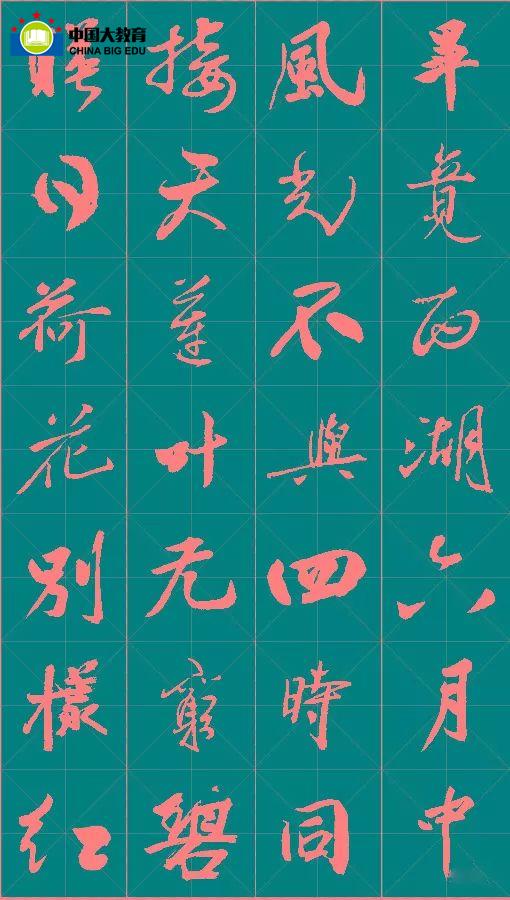 中国大教育
CHINA BIG EDU
畢竟西湖六月中
風光不與四時同
接天蓮叶无窮碧
映日荷花別樣红